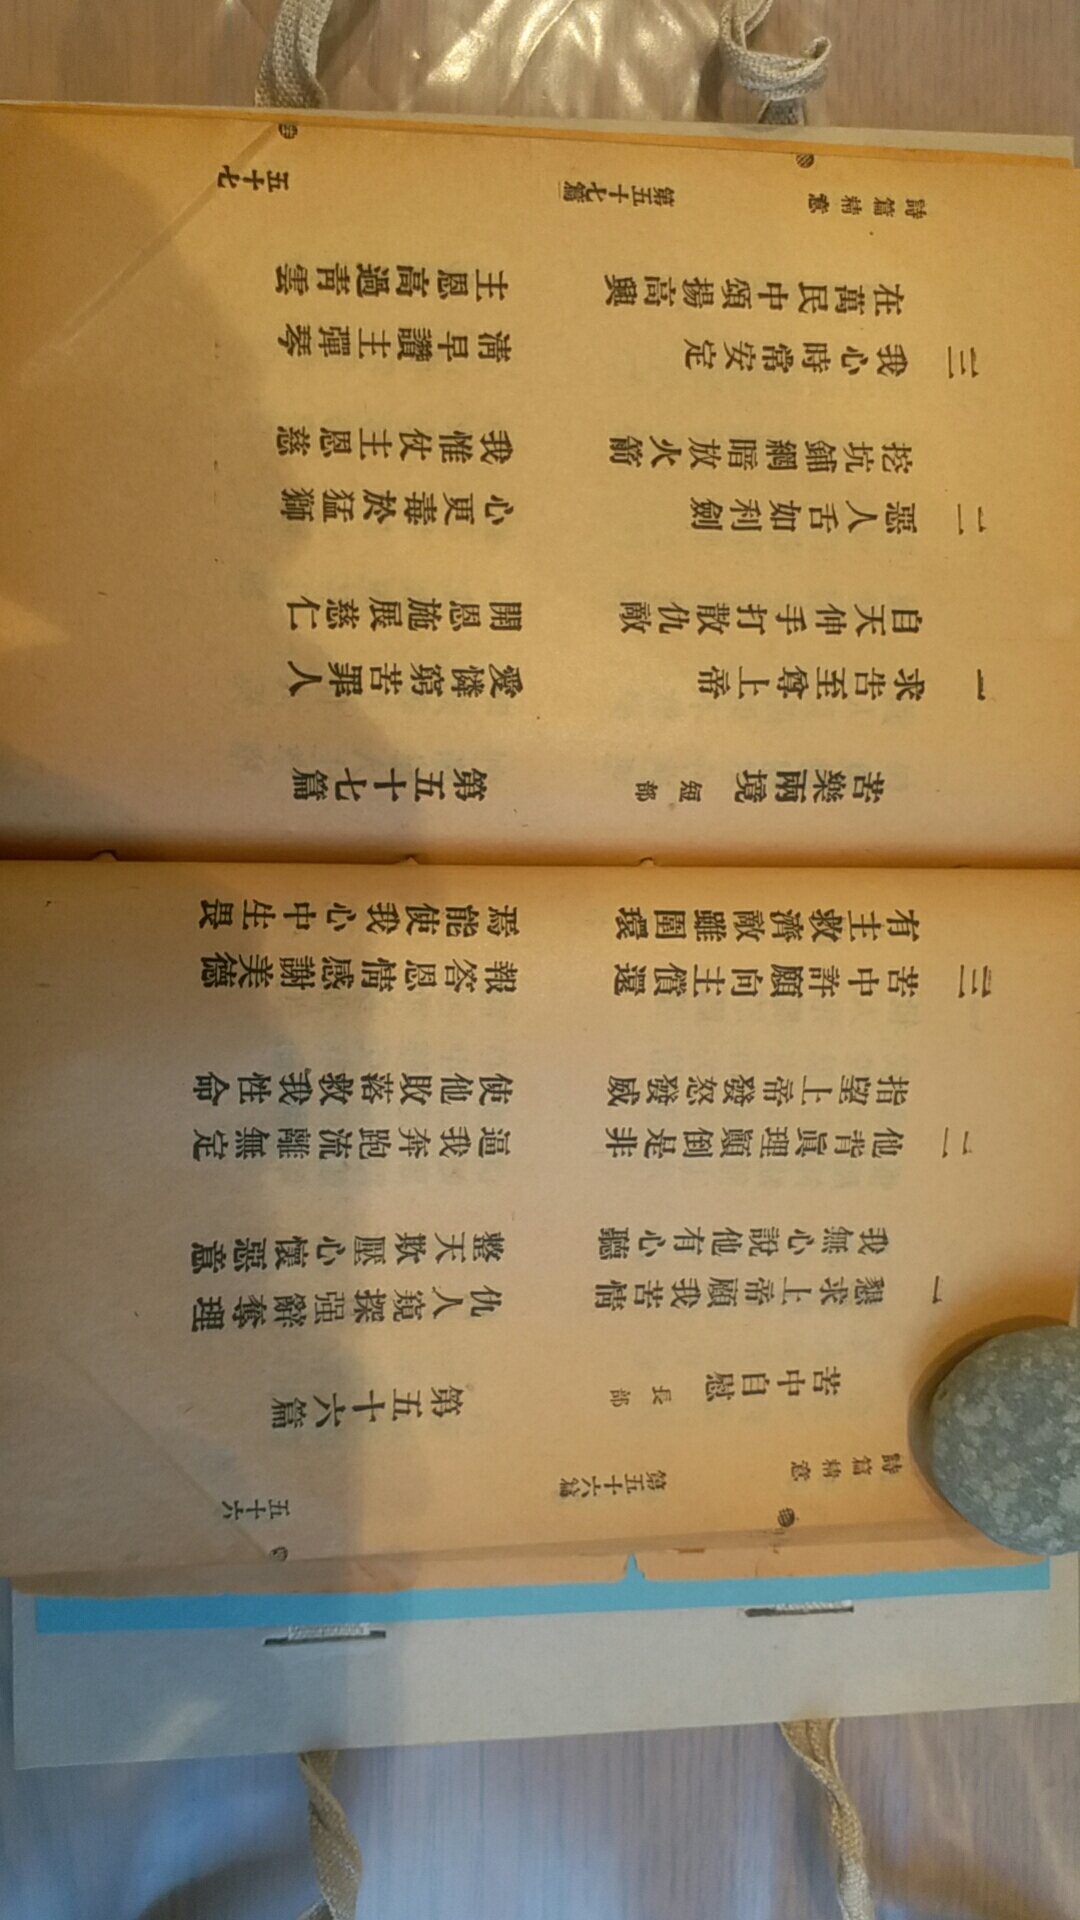 詩篇精意 第五十六篇 五十六
苦中自慰 長部 第五十六篇
一 懇求上帝顧我苦情 仇人窺探强辭奪理
我無心說他有心聽 整天欺壓心懷惡意
二 他背眞理顚倒是非 逼我奔跑流離無定
指望上帝發怒發威 使他敗落救我性命
三 苦中許願向主償還 報答恩情感謝美德
有主救濟敵雖圍環 焉能使我心中生畏
苦樂兩境 短部 第五十七篇
一 求告至尊上帝 愛憐窮苦罪人
自天伸手打散仇敵 開恩施展慈仁
二 惡人舌如利劍 心更毒於猛獅
挖坑鋪網暗放火箭 我惟仗主恩慈
三 我心時常安定 淸早讚主彈琴
在萬民中頌揚高興 主恩高過靑雲
詩篇精意 第五十七篇 五十七